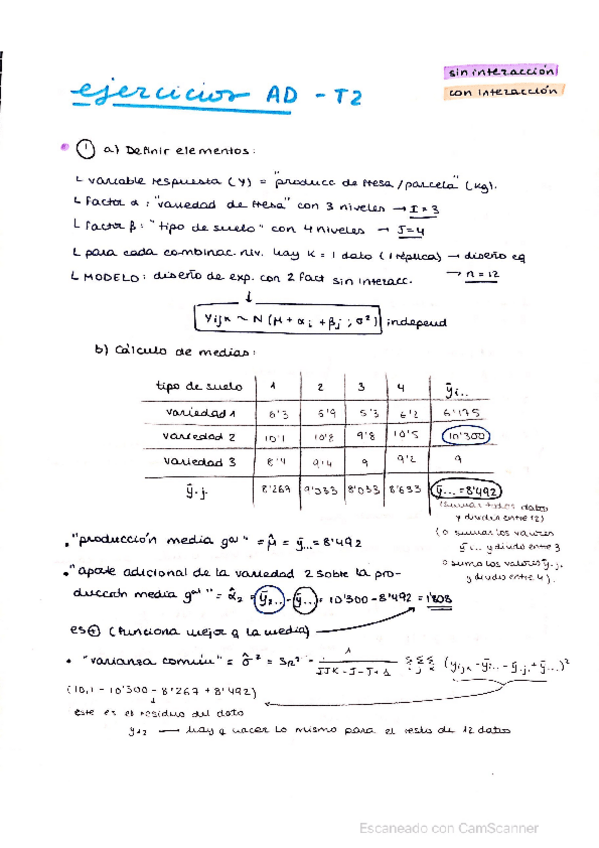 sin interacción
con interacción
ejercicios AD - T2
① a) Definir elementos:
∟ variable respuesta (Y) = "producc de fresa/parcela" (kg).
∟ Factor α: "variedad de fresa" con 3 niveles → I = 3
∟ Factor β: "tipo de suelo" con 4 niveles → J = 4
∟ para cada combinac. niv. hay K = 1 dato (1 réplica) → diseño eq
→ n = 12
∟ MODELO: diseño de exp. con 2 fact sin interacc.
↓
Yijk ~ N(μ + αi + βj ; σ²) independ
b) Cálculo de medias:
tipo de suelo 1 2 3 4 ȳi..
variedad 1 6'3 6'9 5'3 6'2 6'175
variedad 2 10'1 10'8 9'8 10'5 10'300
variedad 3 8'4 9'4 9 9'2 9
ȳ.j. 8'267 9'033 8'033 8'633 ȳ... = 8'492
(sumar todos datos
y dividir entre 12)
(o sumar los valores
ȳi.. y divido entre 3
o sumo los valores ȳ.j.
y divido entre 4).
• "producción media gral" = μ̂ = ȳ... = 8'492
• "aporte adicional de la variedad 2 sobre la pro-
ducción media gral" = α̂2 = ȳ2.. - ȳ... = 10'300 - 8'492 = 1'808
es ⊕ (funciona mejor q la media)
• "varianza común" = σ̂² = SR² = 1 / IJK - I - J + 1 ΣΣΣ i j k (yijk - ȳi.. - ȳ.j. + ȳ...)²
(10,1 - 10'300 - 8'267 + 8'492)
↓
este es el residuo del dato
y12 → hay q hacer lo mismo para el resto de 12 datos
Escaneado con CamScanner